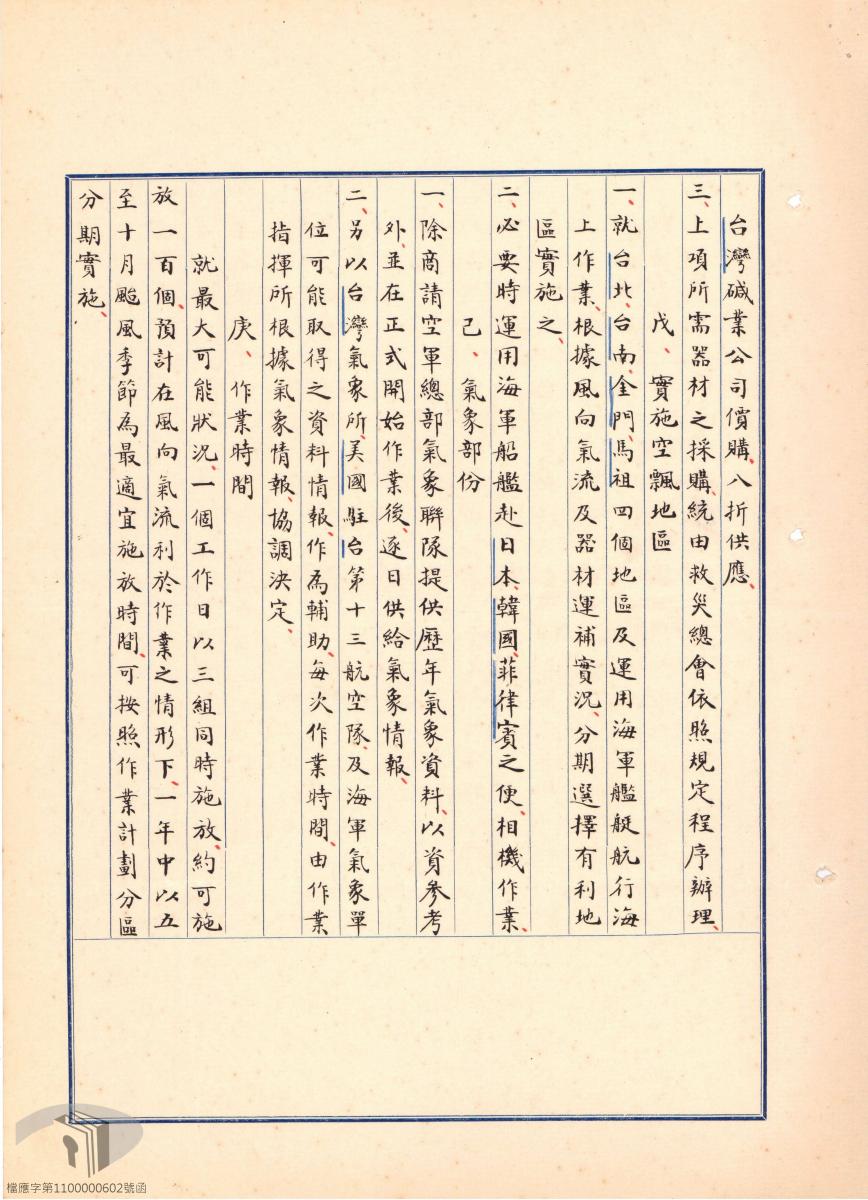 台灣碱業公司價購、八折供應、
三、上項所需器材之採購、統由救災總會依照規定程序辦理、
戊、實施空飄地區
一、就台北、台南、金門、馬祖四個地區及運用海軍艦艇航行海
上作業、根據風向氣流及器材運補實況、分期選擇有利地
區實施之、
二、必要時運用海軍船艦赴日本、韓國、菲律賓之便、相機作業、
己、氣象部份
一、除商請空軍總部氣象聯隊提供歷年氣象資料、以資參考
外、並在正式開始作業後、逐日供給氣象情報、
二、另以台灣氣象所、美國駐台第十三航空隊、及海軍氣象單
位可能取得之資料情報、作為輔助、每次作業時間、由作業
指揮所根據氣象情報、協調決定、
庚、作業時間
就最大可能狀況、一個工作日以三組同時施放、約可施
放一百個、預計在風向氣流利於作業之情形下、一年中以五
至十月颱風季節為最適宜施放時間、可按照作業計劃分區
分期實施、
檔應字第1100000602號函